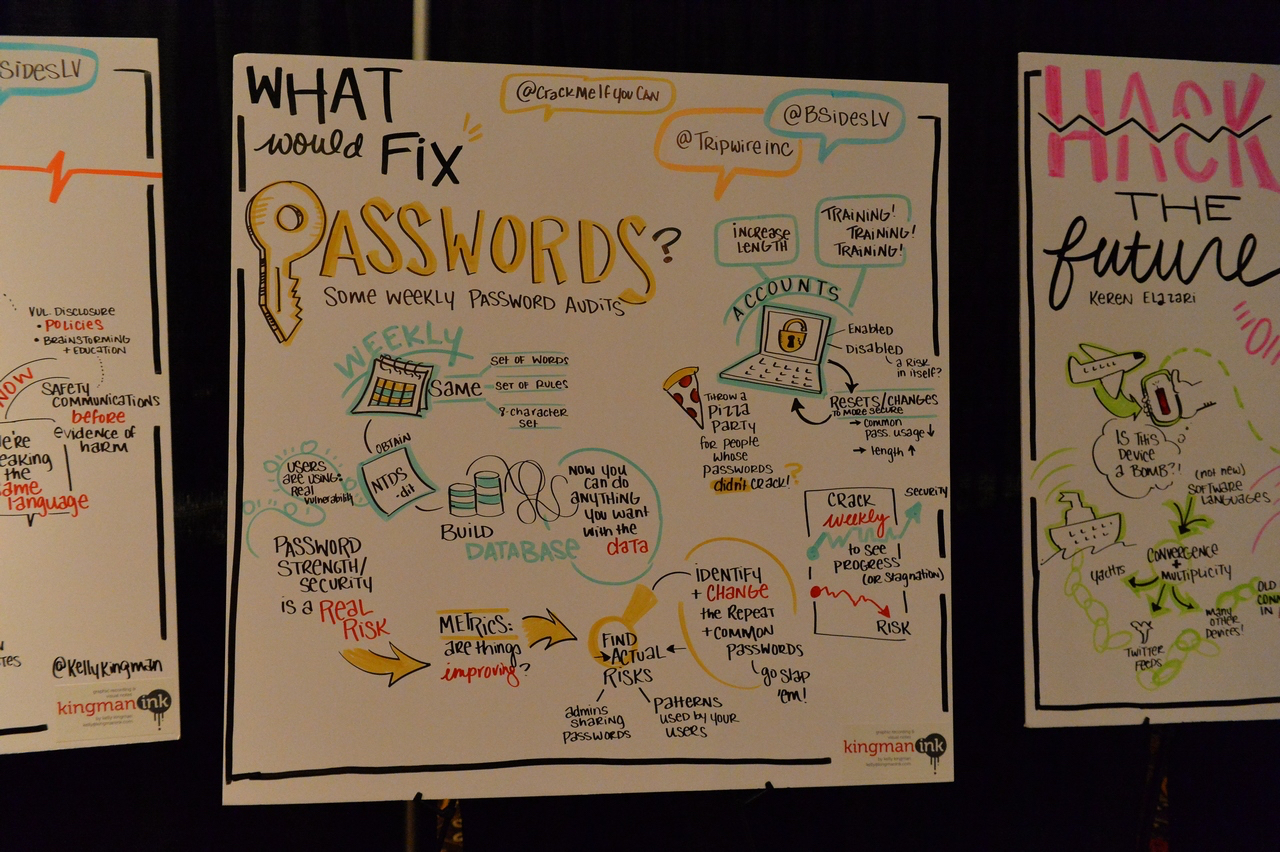 SidesLV
VUL. DISCLOSURE
• POLICIES
• BRAINSTORMING
+ EDUCATION
NOW
SAFETY
COMMUNICATIONS
before
evidence of
HARM
the
language
@KellyKingman
kingmanink
WHAT
would FIX
PASSWORDS?
SOME WEEKLY PASSWORD AUDITS
@CrackMeIfYouCAN
@TripWireinc
@BSidesLV
INCREASE
LENGTH
TRAINING!
TRAINING!
TRAINING!
ACCOUNTS
Enabled
Disabled
a Risk
in itself?
RESETS/CHANGES
TO MORE SECURE
→ common
pass. usage ↓
→ length ↑
WEEKLY
SAME
SET OF WORDS
SET OF RULES
8-character
set
OBTAIN
NTDS
.dit
USERS
ARE USING:
Real
Vulnerability
BUILD
DATABASE
NOW YOU
CAN DO
ANYTHING
YOU WANT
with the
data
THROW A
PIZZA
PARTY
for people
whose
PASSWORDS
didn't crack!
?
CRACK
weekly
to see
PROGRESS
(or stagnation)
SECURITY
RISK
PASSWORD
STRENGTH/
SECURITY
is a Real
Risk
METRICS:
are things
improving?
FIND
ACTUAL
RISKS
admins
sharing
passwords
PATTERNS
used by your
users
IDENTIFY
+ CHANGE
the Repeat
+ COMMON
PASSWORDS
go slap
'em!
kingmanink
HACK
THE
future
KEREN Elazari
IS THIS
DEVICE
a BOMB?!
(not new)
SOFTWARE
LANGUAGES
YACHTS
CONVERGENCE
+
MULTIPLICITY
TWITTER
FEEDS
MANY
OTHER
DEVICES!
OLD